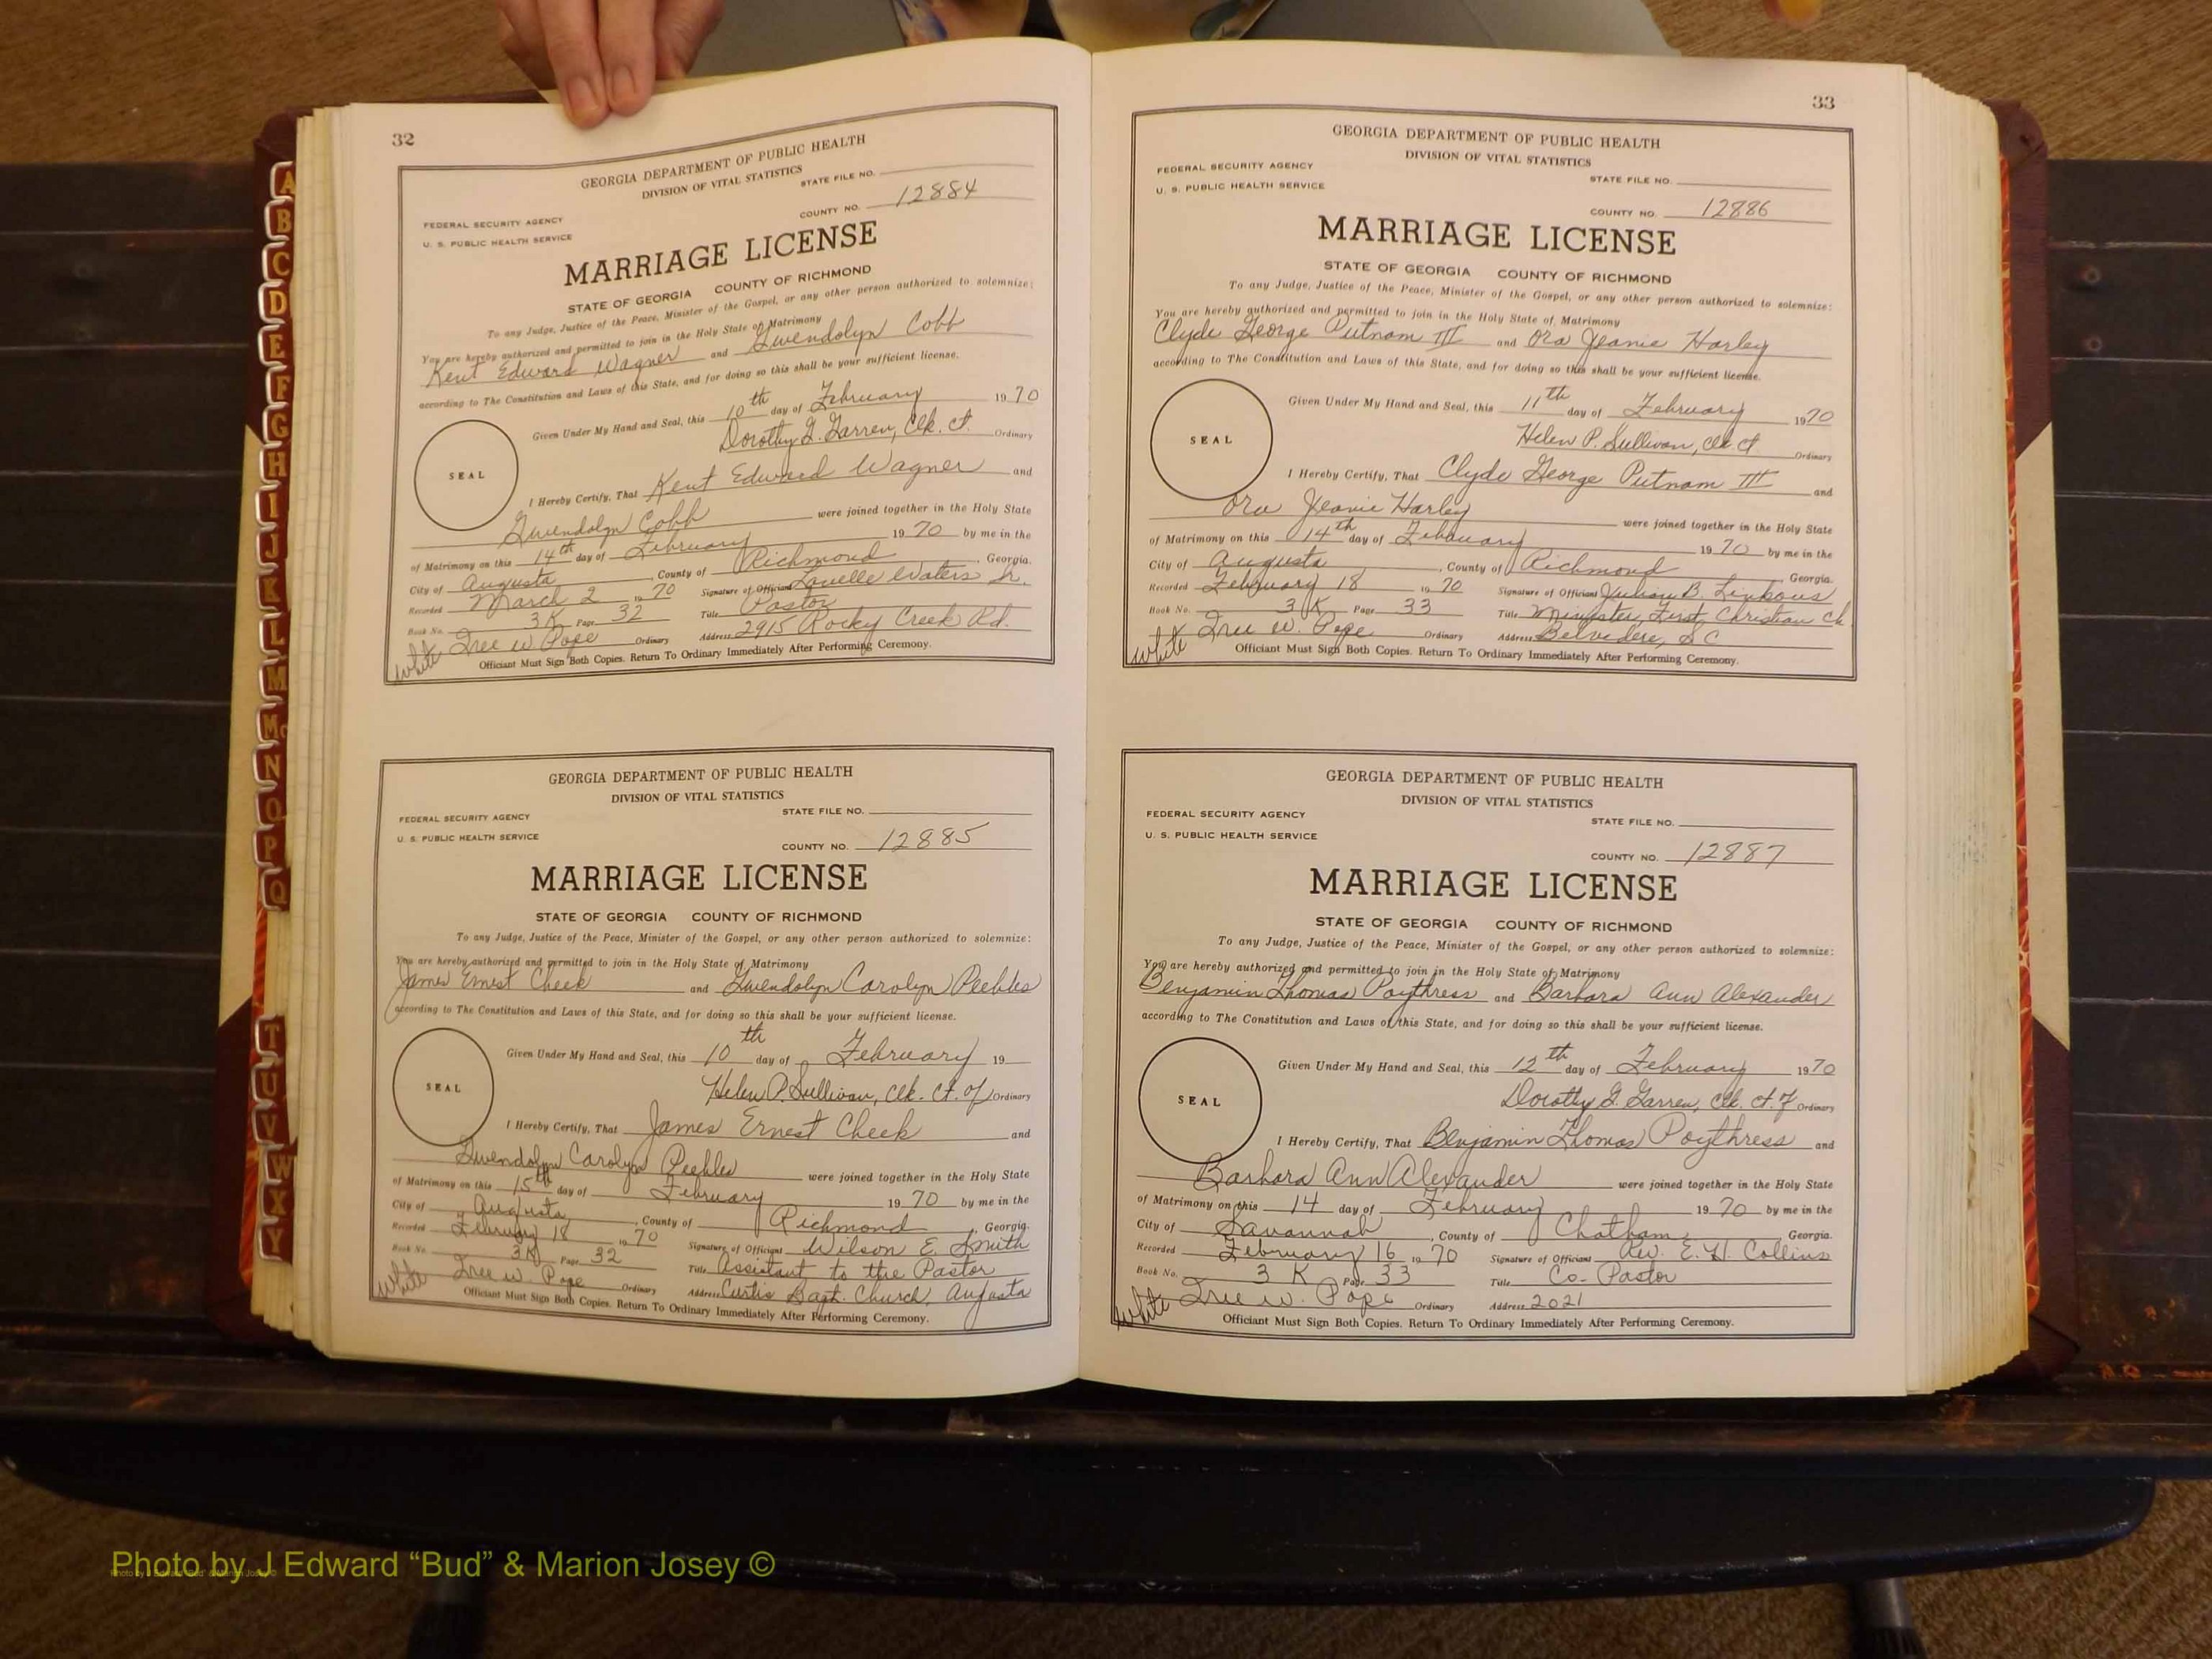 32
GEORGIA DEPARTMENT OF PUBLIC HEALTH
DIVISION OF VITAL STATISTICS
STATE FILE NO.
FEDERAL SECURITY AGENCY
COUNTY NO. 12884
U. S. PUBLIC HEALTH SERVICE
MARRIAGE LICENSE
STATE OF GEORGIA COUNTY OF RICHMOND
To any Judge, Justice of the Peace, Minister of the Gospel, or any other person authorized to solemnize:
You are hereby authorized and permitted to join in the Holy State of Matrimony
Kent Edward Wagner and Gwendolyn Cobb
according to The Constitution and Laws of this State, and for doing so this shall be your sufficient license.
Given Under My Hand and Seal, this 10th day of February 1970
Dorothy G. Garren, Clk. Ct. Ordinary
SEAL
I Hereby Certify, That Kent Edward Wagner and
Gwendolyn Cobb were joined together in the Holy State
of Matrimony on this 14th day of February 1970 by me in the
City of Augusta, County of Richmond, Georgia.
Recorded March 2 1970 Signature of Officiant Louelle Waters Jr.
Book No. 3K Page 32 Title Pastor
Tree W. Pope Ordinary Address 2915 Rocky Creek Rd.
White Officiant Must Sign Both Copies. Return To Ordinary Immediately After Performing Ceremony.
GEORGIA DEPARTMENT OF PUBLIC HEALTH
DIVISION OF VITAL STATISTICS
FEDERAL SECURITY AGENCY STATE FILE NO.
U. S. PUBLIC HEALTH SERVICE COUNTY NO. 12885
MARRIAGE LICENSE
STATE OF GEORGIA COUNTY OF RICHMOND
To any Judge, Justice of the Peace, Minister of the Gospel, or any other person authorized to solemnize:
You are hereby authorized and permitted to join in the Holy State of Matrimony
James Ernest Cheek and Gwendolyn Carolyn Peebles
according to The Constitution and Laws of this State, and for doing so this shall be your sufficient license.
Given Under My Hand and Seal, this 10th day of February 19
Helen P. Sullivan, Clk. Ct. of Ordinary
SEAL
I Hereby Certify, That James Ernest Cheek and
Gwendolyn Carolyn Peebles were joined together in the Holy State
of Matrimony on this 15th day of February 1970 by me in the
City of Augusta, County of Richmond, Georgia.
Recorded February 18 1970 Signature of Officiant Wilson E. Smith
Book No. 3K Page 32 Title Assistant to the Pastor
Tree W. Pope Ordinary Address Curtis Bapt. Church, Augusta
White Officiant Must Sign Both Copies. Return To Ordinary Immediately After Performing Ceremony.
33
GEORGIA DEPARTMENT OF PUBLIC HEALTH
DIVISION OF VITAL STATISTICS
FEDERAL SECURITY AGENCY STATE FILE NO.
U. S. PUBLIC HEALTH SERVICE
COUNTY NO. 12886
MARRIAGE LICENSE
STATE OF GEORGIA COUNTY OF RICHMOND
To any Judge, Justice of the Peace, Minister of the Gospel, or any other person authorized to solemnize:
You are hereby authorized and permitted to join in the Holy State of Matrimony
Clyde George Putnam III and Ora Jeanie Harley
according to The Constitution and Laws of this State, and for doing so this shall be your sufficient license.
Given Under My Hand and Seal, this 11th day of February 1970
Helen P. Sullivan, Clk. Ct. Ordinary
SEAL
I Hereby Certify, That Clyde George Putnam III and
Ora Jeanie Harley were joined together in the Holy State
of Matrimony on this 14th day of February 1970 by me in the
City of Augusta, County of Richmond, Georgia.
Recorded February 18 1970 Signature of Officiant Julian B. Linkous
Book No. 3K Page 33 Title Minister, First Christian Ch.
Tree W. Pope Ordinary Address Belvedere, SC
White Officiant Must Sign Both Copies. Return To Ordinary Immediately After Performing Ceremony.
GEORGIA DEPARTMENT OF PUBLIC HEALTH
DIVISION OF VITAL STATISTICS
FEDERAL SECURITY AGENCY STATE FILE NO.
U. S. PUBLIC HEALTH SERVICE
COUNTY NO. 12887
MARRIAGE LICENSE
STATE OF GEORGIA COUNTY OF RICHMOND
To any Judge, Justice of the Peace, Minister of the Gospel, or any other person authorized to solemnize:
You are hereby authorized and permitted to join in the Holy State of Matrimony
Benjamin Thomas Poythress and Barbara Ann Alexander
according to The Constitution and Laws of this State, and for doing so this shall be your sufficient license.
Given Under My Hand and Seal, this 12th day of February 1970
Dorothy G. Garren, Clk. Ct. of Ordinary
SEAL
I Hereby Certify, That Benjamin Thomas Poythress and
Barbara Ann Alexander were joined together in the Holy State
of Matrimony on this 14 day of February 1970 by me in the
City of Savannah, County of Chatham, Georgia.
Recorded February 16 1970 Signature of Officiant Rev. E. H. Collins
Book No. 3 K Page 33 Title Co-Pastor
Tree W. Pope Ordinary Address 2021
White Officiant Must Sign Both Copies. Return To Ordinary Immediately After Performing Ceremony.
A
B
C
D
E
F
G
H
I
J
K
L
M
Mc
N
O
P
Q
T
U
V
W
X
Y
Photo by J Edward “Bud” & Marion Josey ©
Photo by J Edward “Bud” & Marion Josey ©